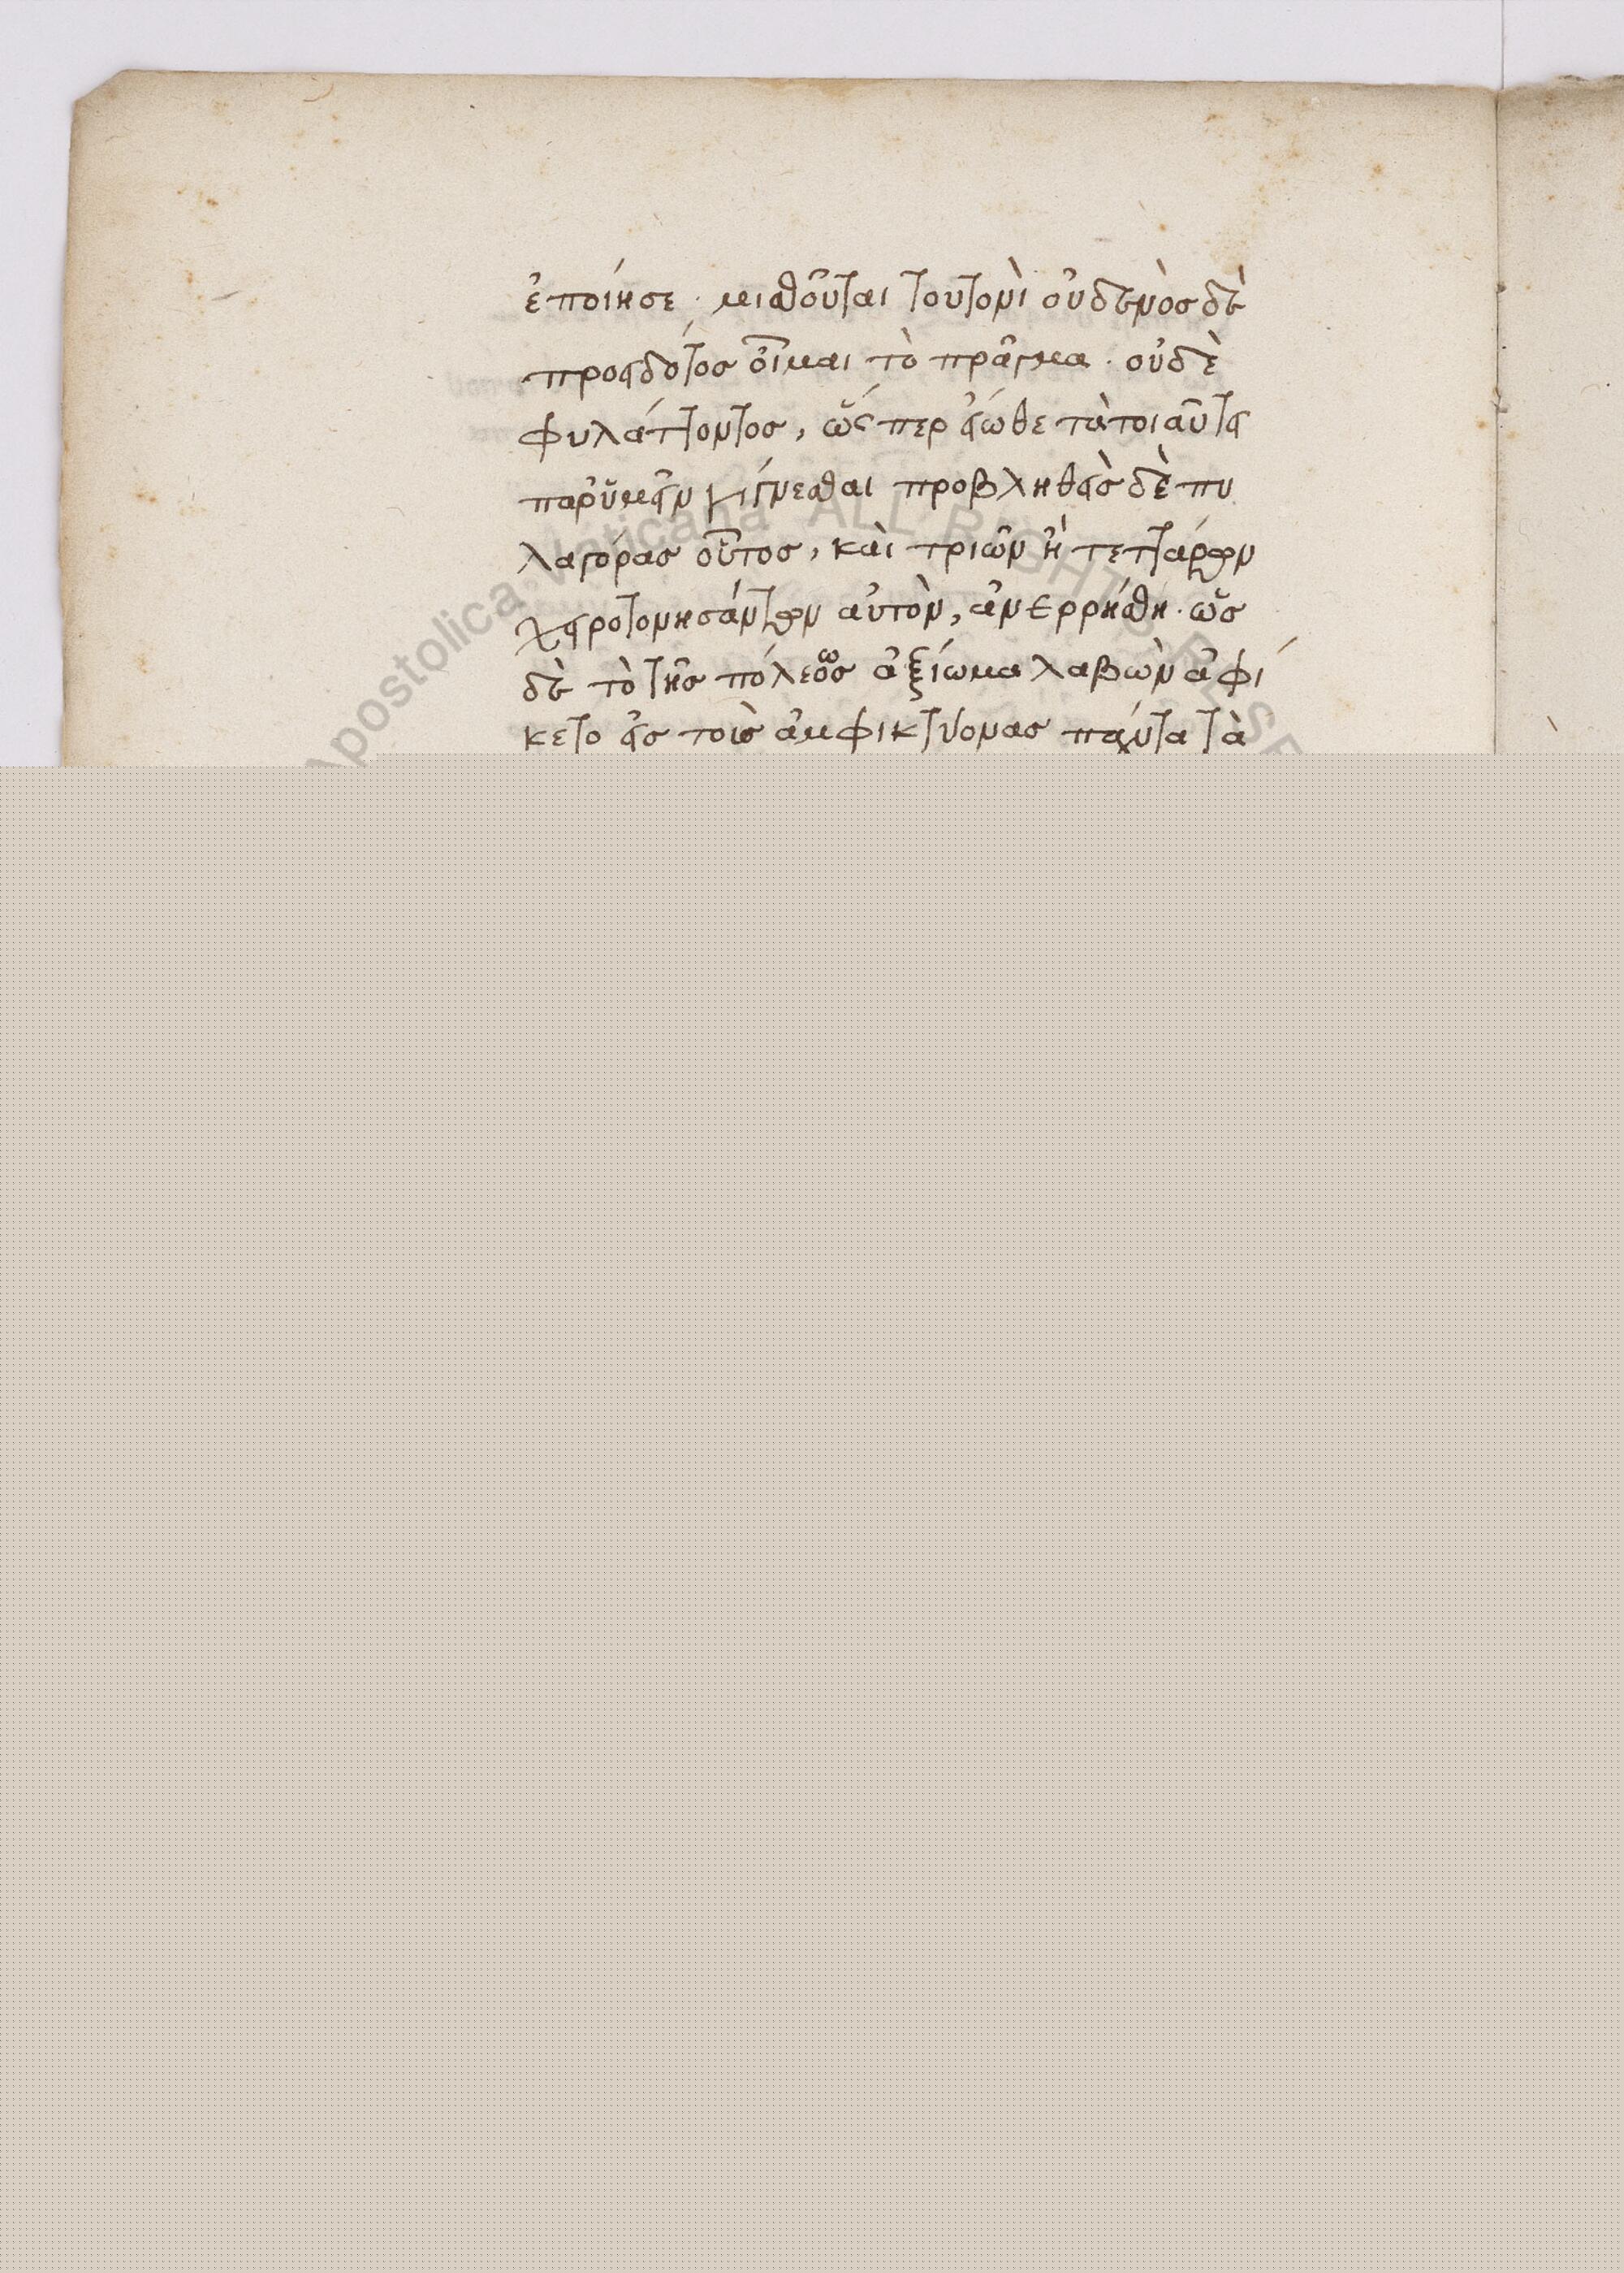 ἐποίησε· μισθοῦται τουτονὶ οὐδενὸς δὲ
προειδότος οἶμαι τὸ πρᾶγμα· οὐδὲ
φυλάττοντος, ὥς περ εἰώθε τὰ τοιαῦτα
παρ' ὑμῖν γίγνεσθαι προβληθεὶς δὲ πυ
λαγόρας οὗτος, καὶ τριῶν ἢ τεττάρων
χειροτονησάντων αὐτὸν, ἀνερρήθη· ὡς
δὲ τὸ τῆς πόλεως ἀξίωμα λαβὼν ἀφί
κετο εἰς τοὺς ἀμφικτύονας πάντα τὰ
Apostolica Vaticana ALL RIGHTS RESE